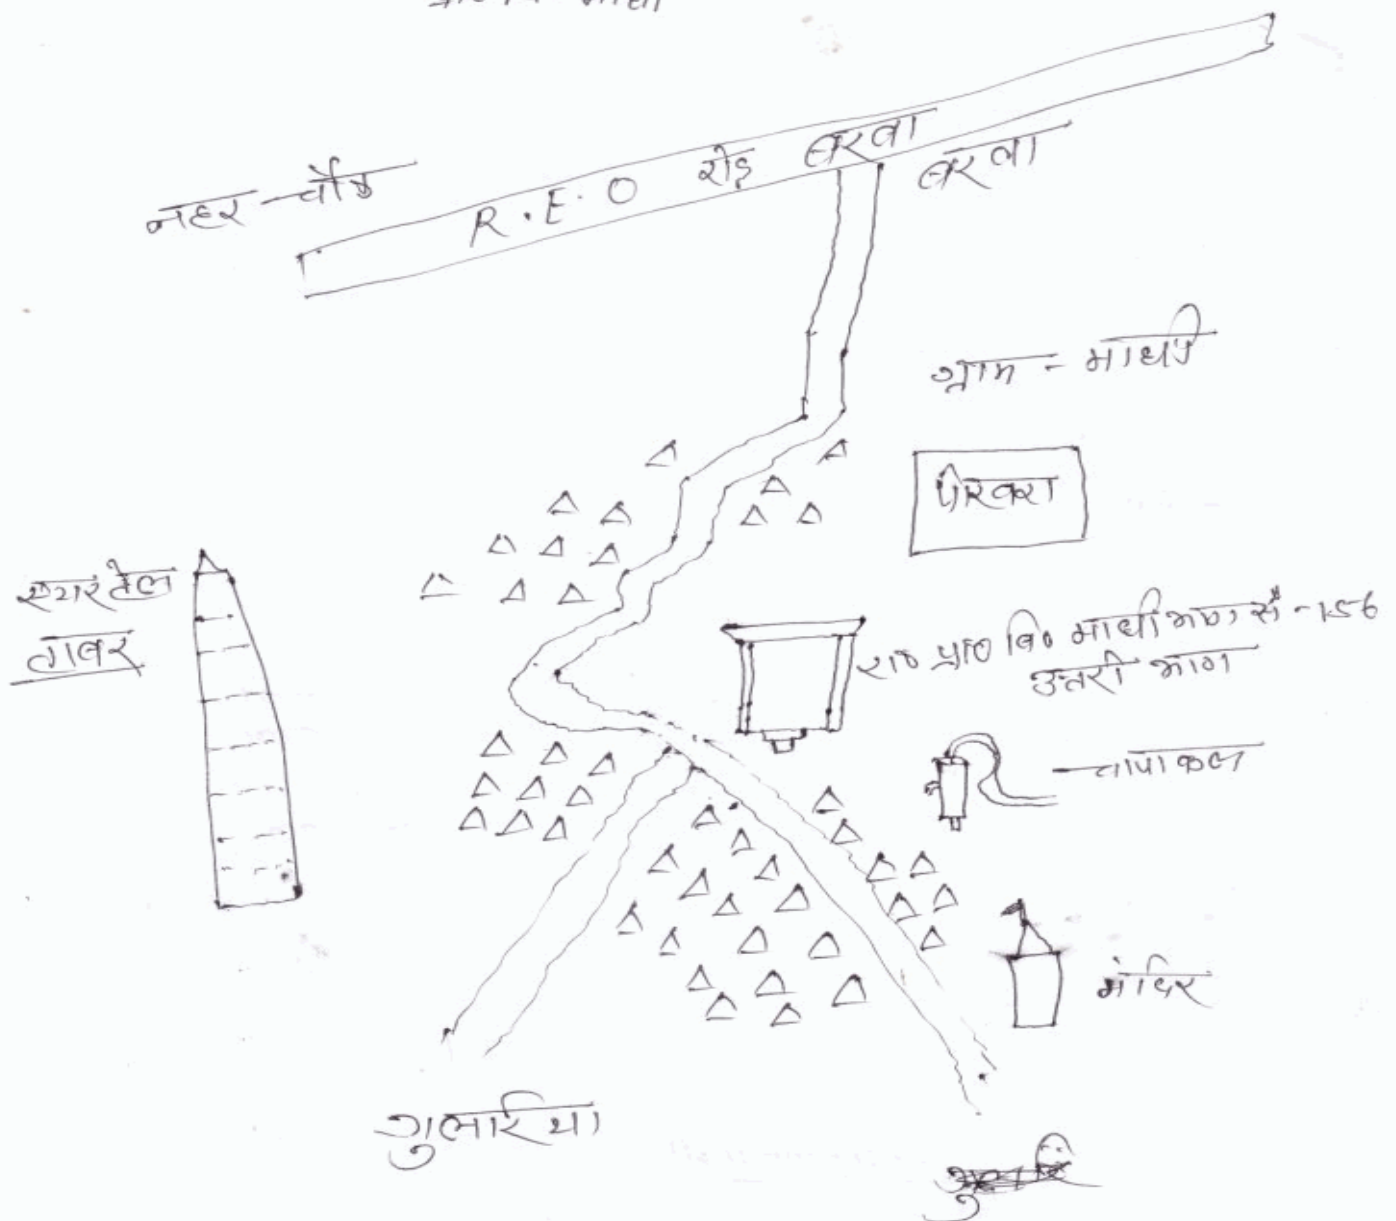 नहर-चौक
R.E.O रोड़ बरवा
बरवा
ग्राम - माधी
पोखरा
एयरटेल
टावर
रा० प्रा० वि० माधी भाग सं - 156
उत्तरी भाग
चापाकल
मंदिर
गुलरिया